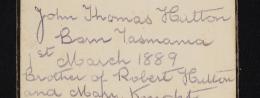 John Thomas Hutton
Born Tasmania
1st March 1889
Brother of Robert Hutton
and Mary Knight